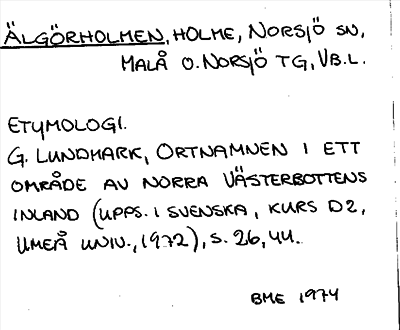 ÄLGÖRHOLMEN, HOLME, NORSJÖ SN,
MALÅ O. NORSJÖ TG, VB.L.
ETYMOLOGI.
G. LUNDMARK, ORTNAMNEN I ETT
OMRÅDE AV NORRA VÄSTERBOTTENS
INLAND (UPPS. I SVENSKA, KURS D2,
UMEÅ UNIV., 1972), S. 26, 44.
BME 1974